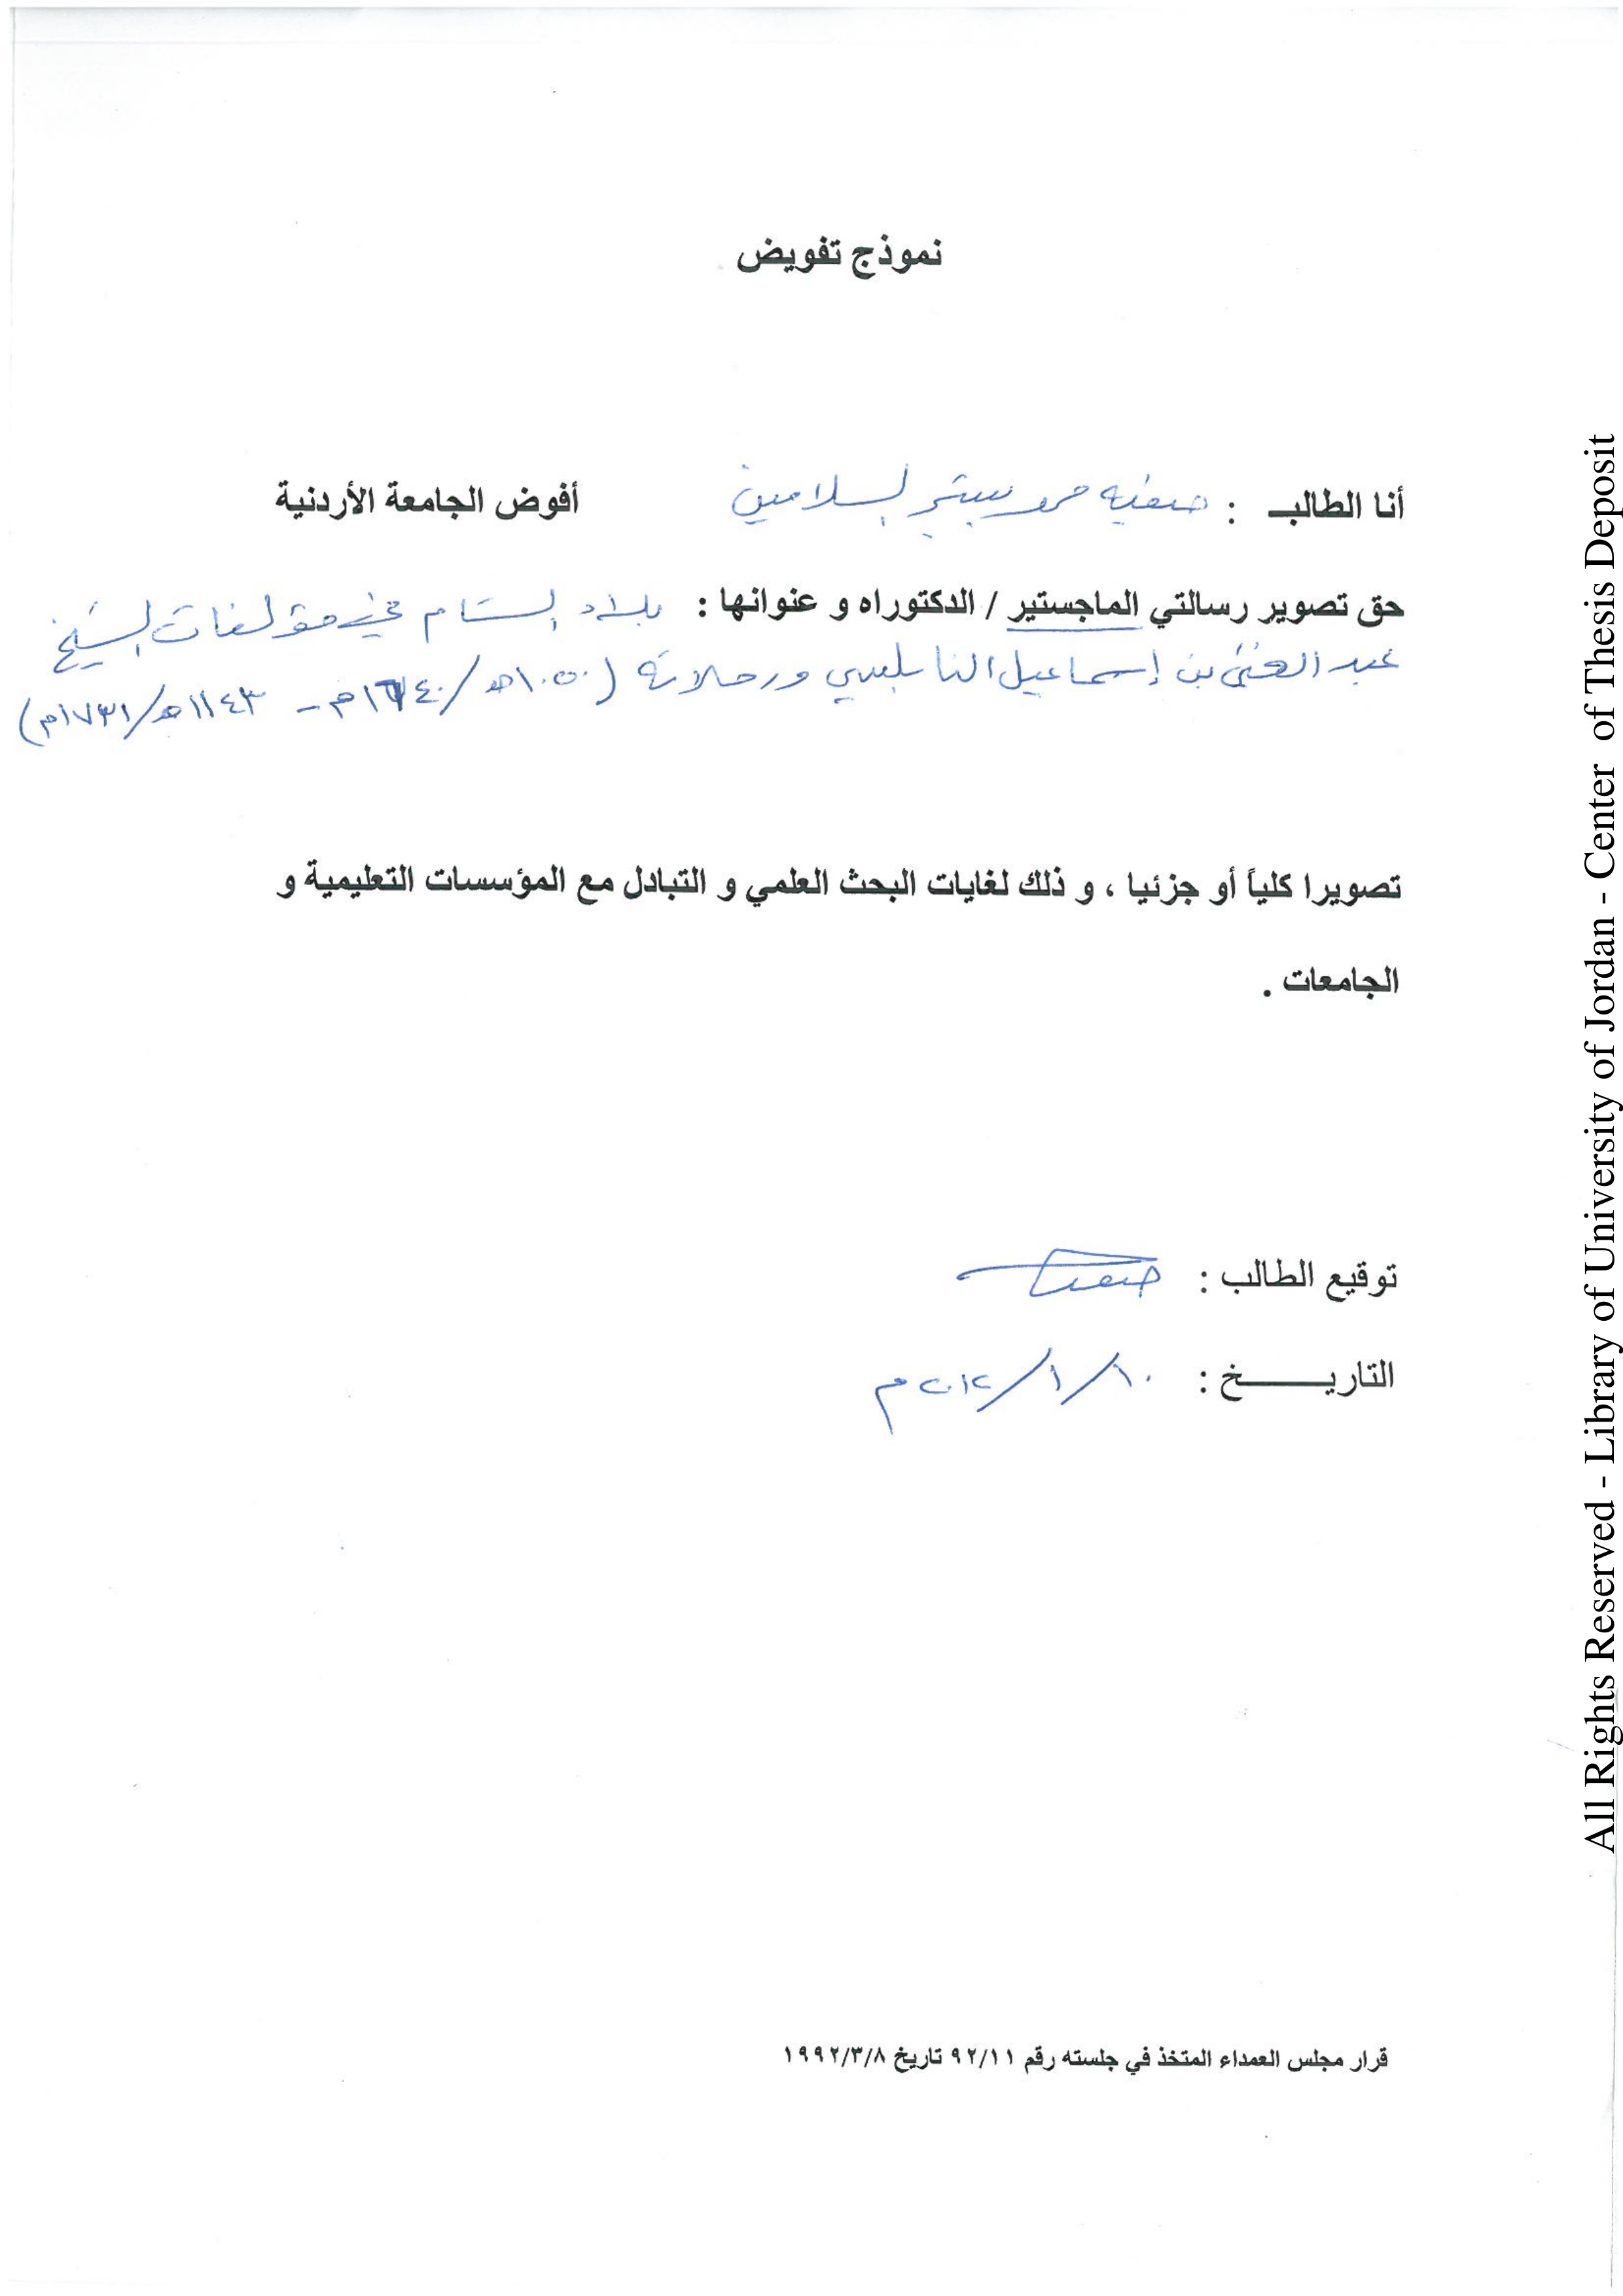 نموذج تفويض
أنا الطالبـ : صفيه السلامين أفوض الجامعة الأردنية
حق تصوير رسالتي الماجستير / الدكتوراه و عنوانها : بلاد الشام في مؤلفات الشيخ
عبد الغني بن إسماعيل النابلسي ورحلاته (١٠٥٠هـ/١٦٤٠م - ١١٤٣هـ/١٧٣١م)
تصويرا كلياً أو جزئيا ، و ذلك لغايات البحث العلمي و التبادل مع المؤسسات التعليمية و
الجامعات .
توقيع الطالب :
التاريـــــخ : ١٠/١/٢٠١٢م
قرار مجلس العمداء المتخذ في جلسته رقم ٩٢/١١ تاريخ ١٩٩٢/٣/٨
All Rights Reserved - Library of University of Jordan - Center of Thesis Deposit